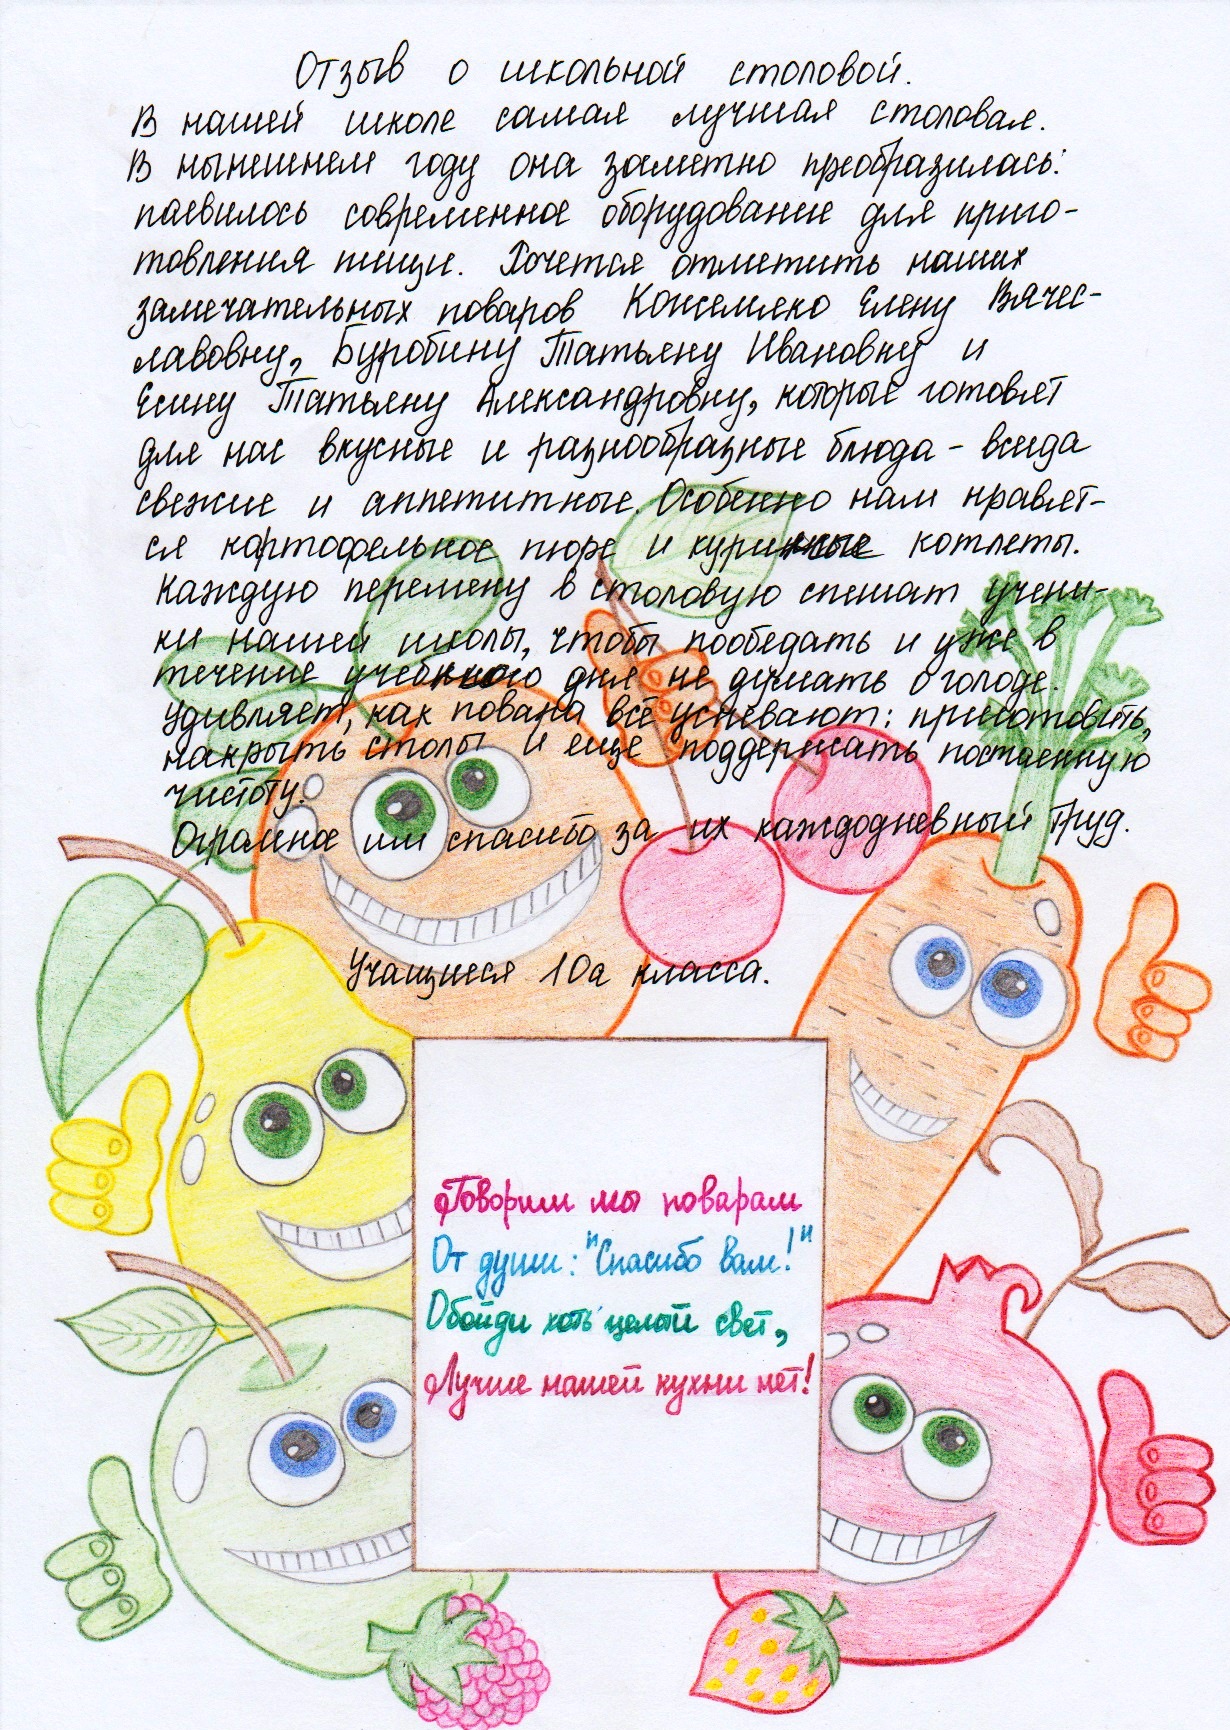 Отзыв о школьной столовой.
В нашей школе самая лучшая столовая.
В нынешнем году она заметно преобразилась:
появилось современное оборудование для приго-
товления пищи. Хочется отметить наших
замечательных поваров Кожемяко Елену Вячес-
лавовну, Буробину Татьяну Ивановну и
Есину Татьяну Александровну, которые готовят
для нас вкусные и разнообразные блюда - всегда
свежие и аппетитные. Особенно нам нравят-
ся картофельное пюре и куриные котлеты.
Каждую перемену в столовую спешат учени-
ки нашей школы, чтобы пообедать и уже в
течение учебного дня не думать о голоде.
Удивляет, как повара всё успевают: приготовить,
накрыть столы и еще поддержать постоянную
чистоту.
Огромное им спасибо за их каждодневный труд.
Учащиеся 10а класса.
Говорим мы поварам
От души: "Спасибо вам!"
Обойди хоть целый свет,
Лучше нашей кухни нет!